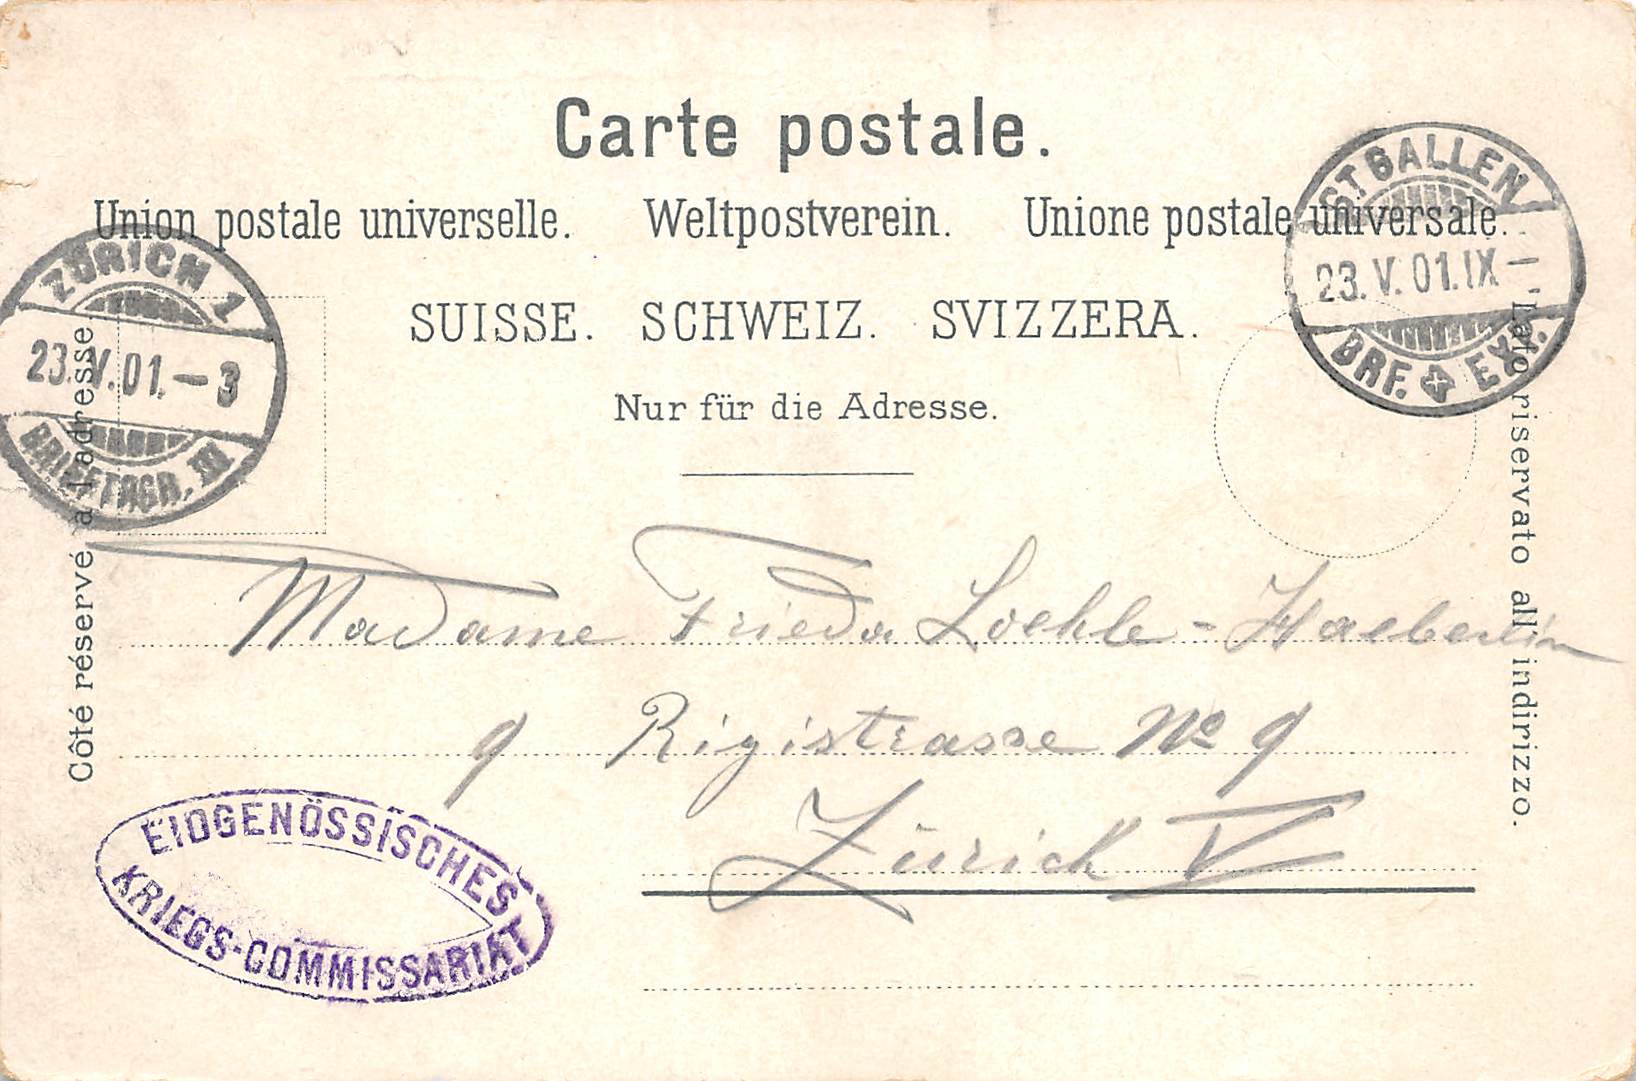 Carte postale.
Union postale universelle. Weltpostverein. Unione postale universale.
SUISSE. SCHWEIZ. SVIZZERA.
Nur für die Adresse.
Côté réservé à l'adresse
Lato riservato all'indirizzo.
ZÜRICH 1
23.V.01.–3
BRIEFTRGR. III
ST. GALLEN
23.V.01.IX–
BRF. EXP.
Madame Frieda Loehle-Haeberlin
9 Rigistrasse No 9
Zürich V
EIDGENÖSSISCHES
KRIEGS-COMMISSARIAT